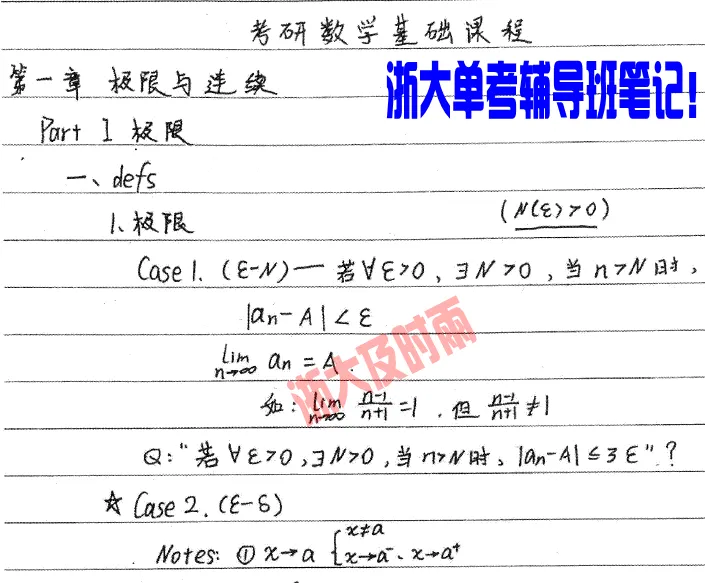 考研数学基础课程
第一章 极限与连续
浙大单考辅导班笔记!
Part I 极限
一、defs
1.极限
(N(ε)>0)
Case 1. (ε-N)— 若∀ε>0, ∃N>0, 当n>N时,
|an-A|<ε
lim n→∞ an=A.
浙大及时雨
如: lim n→∞ n-1/n+1=1. 但 n-1/n+1≠1
Q:"若∀ε>0,∃N>0,当n>N时,|an-A|≤3ε"?
☆ Case 2. (ε-δ)
Notes: ① x→a { x≠a
x→a⁻、x→a⁺